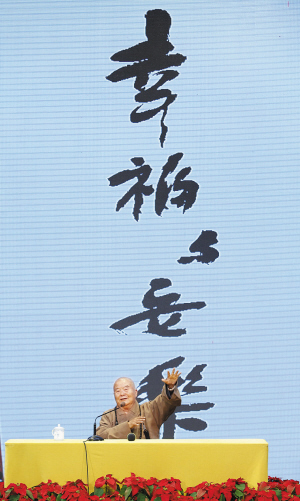 幸福与安樂